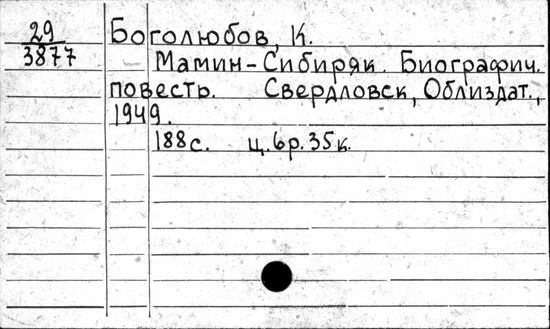 29
3877
Боголюбов, К.
Мамин-Сибиряк. Биографич.
повесть. Свердловск, Облиздат.,
1949.
188с. ц.6р.35к.